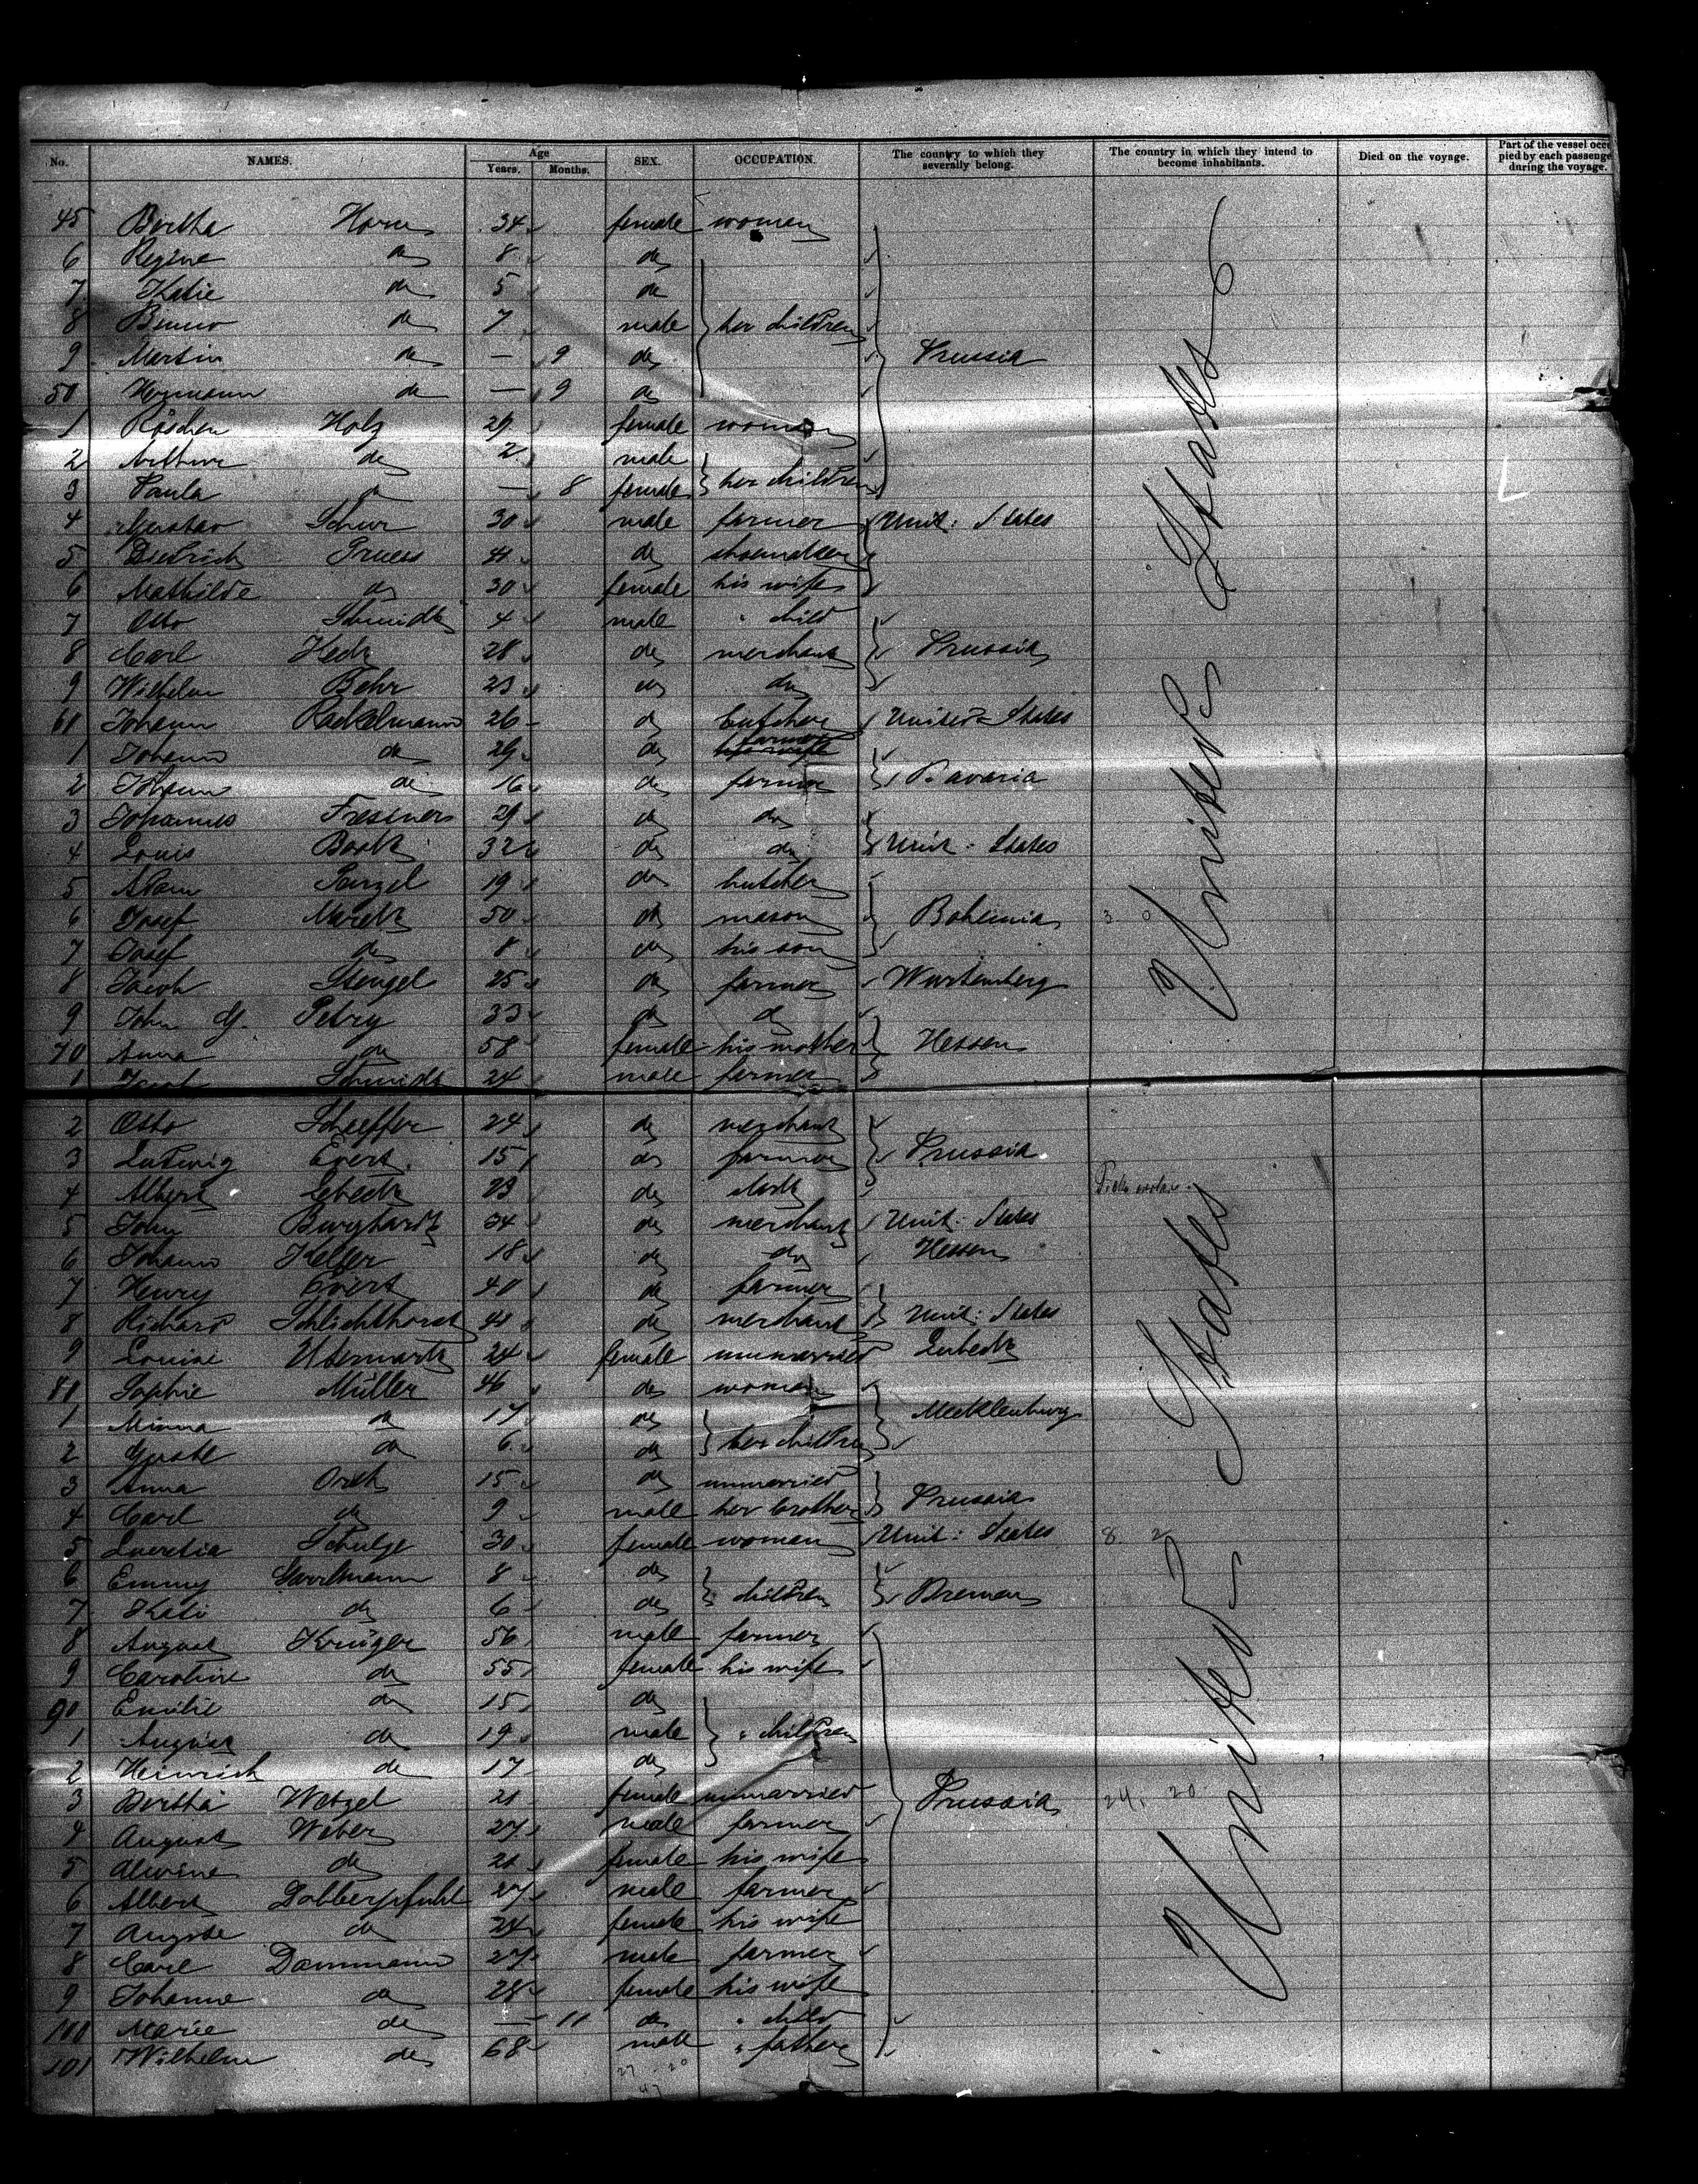 No. NAMES. Age Years. Months. SEX. OCCUPATION. The country to which they severally belong. The country in which they intend to become inhabitants. Died on the voyage. Part of the vessel occupied by each passenger during the voyage.
45 Bertha Horn 34 female women
6 Regine do 8 do
7 Katie do 5 do
8 Bruno do 7 male her children
9 Martin do — 9 do Prussia
50 Hermann do — 9 do
1 Röschen Holz 29 female woman
2 Arthur do 2 male
3 Paula do — 8 female her children
4 Gustav Schur 30 male farmer Unit: States
5 Dietrich Pruess 41 do shoemaker
6 Mathilde do 30 female his wife
7 Otto Schmidt 4 male " child
8 Carl Heck 28 do merchant Prussia
9 Wilhelm Behr 23 do do
60 Johann Rackelmann 26 do butcher United States
1 Johann do 29 do farmer
2 Johann do 16 do farmer Bavaria
3 Johannes Fressner 29 do do
4 Louis Book 32 do do Unit: States
5 Adam Penzel 19 do butcher
6 Josef Marek 50 do mason Bohemia 3 0
7 Josef do 8 do his son
8 Jacob Stengel 25 do farmer Wurtemberg
9 John G. Petry 33 do do
70 Anna do 58 female his mother Hessen
1 Schmidt 24 male farmer
2 Otto Scheffer 24 do merchant
3 Ludwig Evert 15 do farmer Prussia
4 Albert Lebeck 23 do clerk
5 John Burghardt 34 do merchant Unit: States
6 Johann Keller 18 do do Hessen
7 Henry Evert 40 do farmer
8 Richard Schlichthorst 41 do merchant Unit: States
9 Louise Utermark 24 female unmarried Lubeck
80 Sophie Müller 46 do woman
1 Minna do 17 do
2 Guste do 6 do her children Mecklenburg
3 Anna Orth 15 do unmarried
4 Carl do 9 male her brother Prussia
5 Lucretia Schulze 30 female woman Unit: States 8. 2
6 Emmy 8 do
7 Kati do 6 do children Bremen
8 August Krüger 56 male farmer
9 Caroline do 55 female his wife
90 Emilie do 15 do
1 August do 19 male " children
2 Heinrich do 17 do
3 Bertha Wetzel 21 female unmarried Prussia 24. 20
4 August Weber 27 male farmer
5 Alwine do 21 female his wife
6 Albert Dobberpfuhl 27 male farmer
7 Auguste do 24 female his wife
8 Carl Dammann 27 male farmer
9 Johanne do 28 female his wife
100 Marie do — 11 do " child
101 Wilhelm do 68 male " father
27 20
47
United States
United States